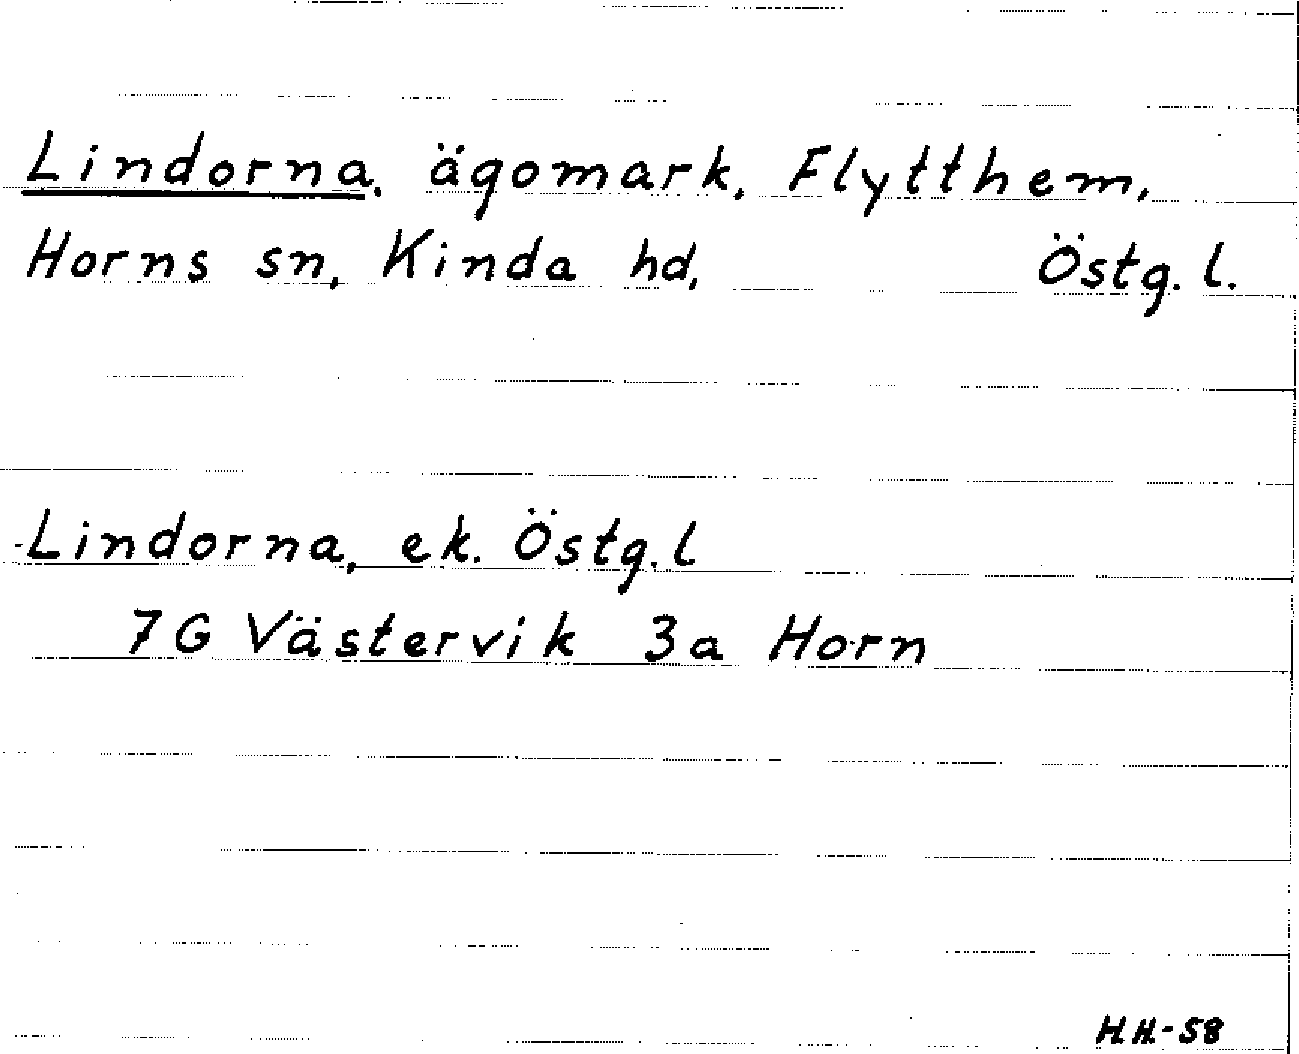 Lindorna, ägomark, Flytthem,
Horns sn, Kinda hd, Östg. l.
Lindorna, ek. Östg. l
7G Västervik 3a Horn
H.H.-58